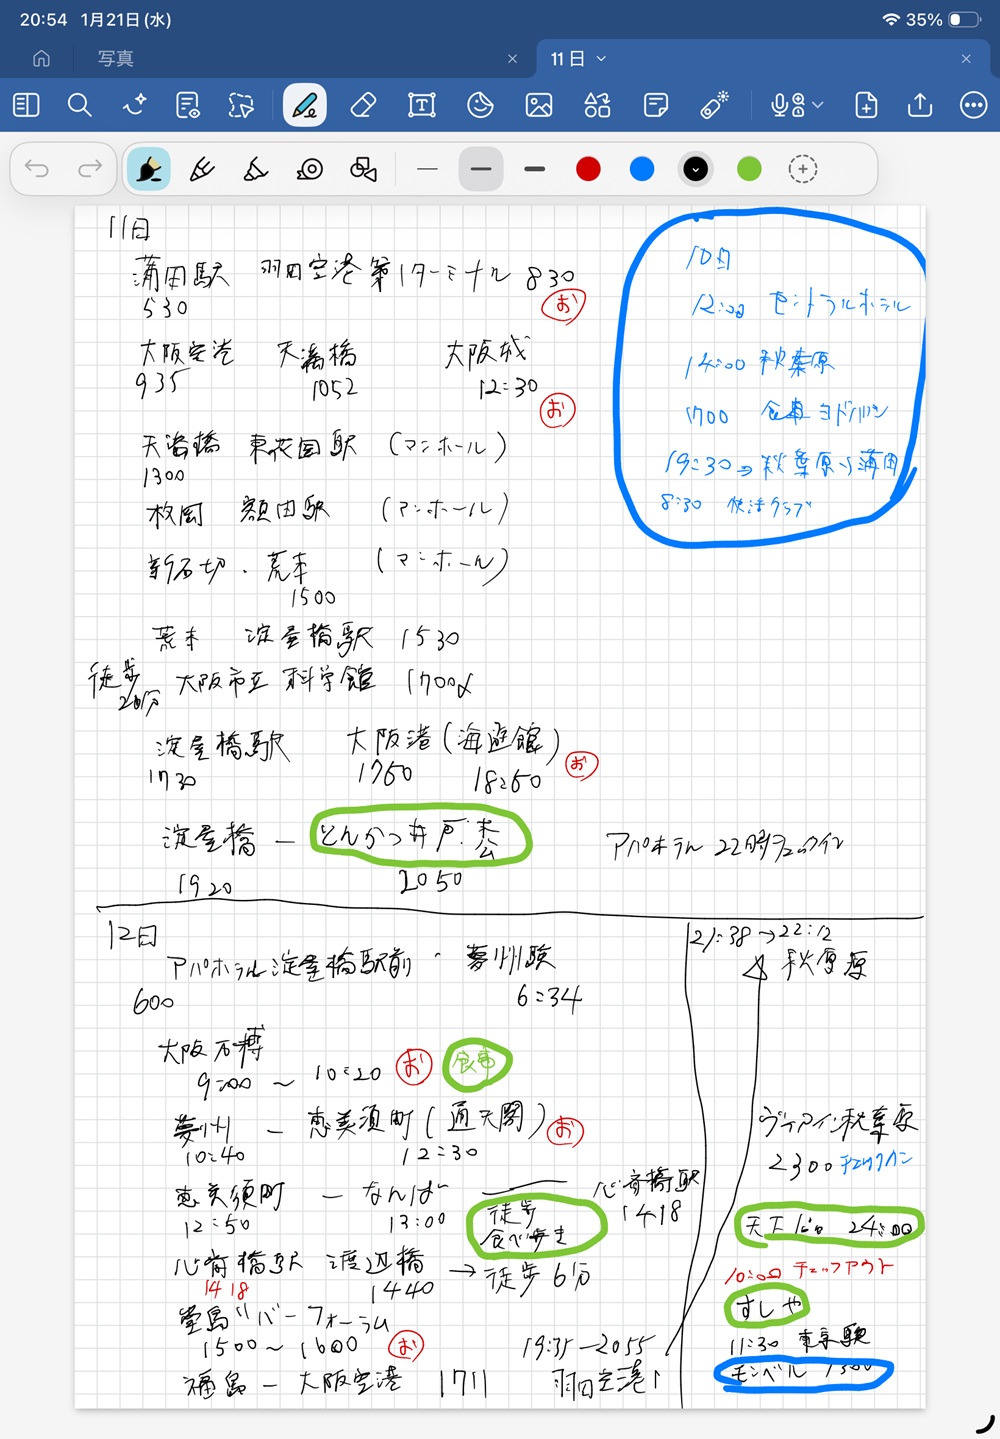 20:54 1月21日(水)
35%
写真
11日
11日
蒲田駅 羽田空港第1ターミナル 830
530
お
大阪空港 天満橋 大阪城
935 1052 12:30
お
天満橋 東花園駅 (マンホール)
1300
枚岡 額田駅 (マンホール)
新石切・荒本 (マンホール)
1500
荒本 淀屋橋駅 1530
徒歩 大阪市立科学館 1700
20分
淀屋橋駅 大阪港(海遊館)
1730 1750 18:50
お
淀屋橋 ― とんかつ井戸
1920 2050
アパホテル 22時チェックイン
10日
12:00 セントラルホテル
14:00 秋葉原
1700 食事 ヨドバシ
19:30→秋葉原→蒲田
8:30 快活クラブ
12日
アパホテル淀屋橋駅前・夢州駅
600 6:34
大阪万博
9:00 ~ 10:20 お 食事
夢州 ― 恵美須町(通天閣) お
10:40 12:30
恵美須町 ― なんば
12:50 13:00
徒歩
食べ歩き
心斎橋駅
1418
心斎橋駅 渡辺橋 → 徒歩6分
1418 1440
堂島リバーフォーラム
1500~1600 お
福島 ― 大阪空港 1711
19:35―2055
羽田空港
21:38→22:12
秋葉原
ヴィアイン秋葉原
2300チェックイン
天下 24:00
10:00 チェックアウト
すしや
11:30 東京駅
モンベル 1300